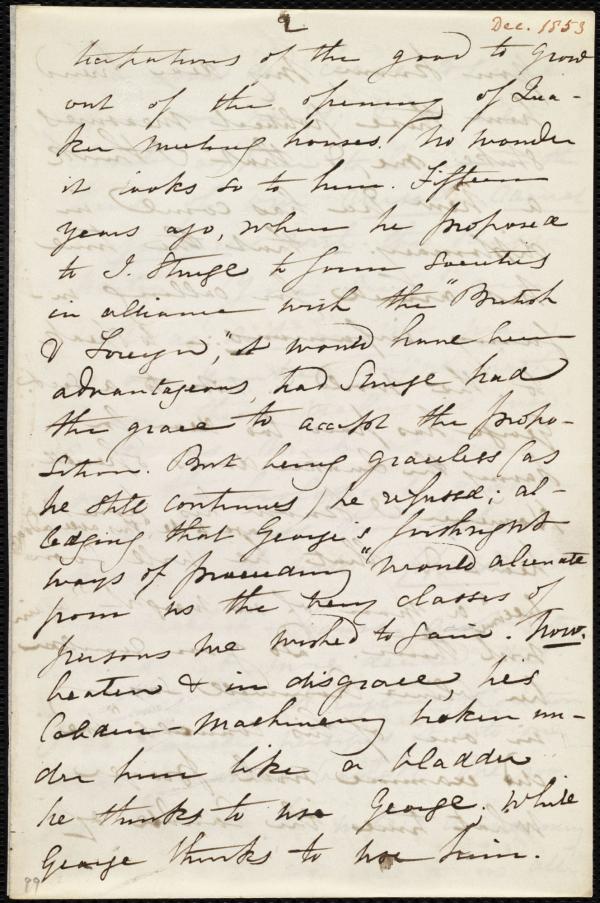 2
Dec. 1853
ticipations of the good to grow
out of the opening of Qua-
ker meeting houses. No wonder
it looks so to him. Fifteen
years ago, when he proposed
to J. Sturge to form societies
in alliance with the "British
& Foreign," it would have been
advantageous, had Sturge had
the grace to accept the propo-
sition. But being graceless (as
he still continues) he refused; al-
ledging that George's forthright
ways of proceeding "would alienate
from us the very classes of
persons we wished to gain. Now.
beaten & in disgrace, his
Cobden-machinery broken un-
der him like a bladder
he thinks to use George, while
George thinks to use him.
99